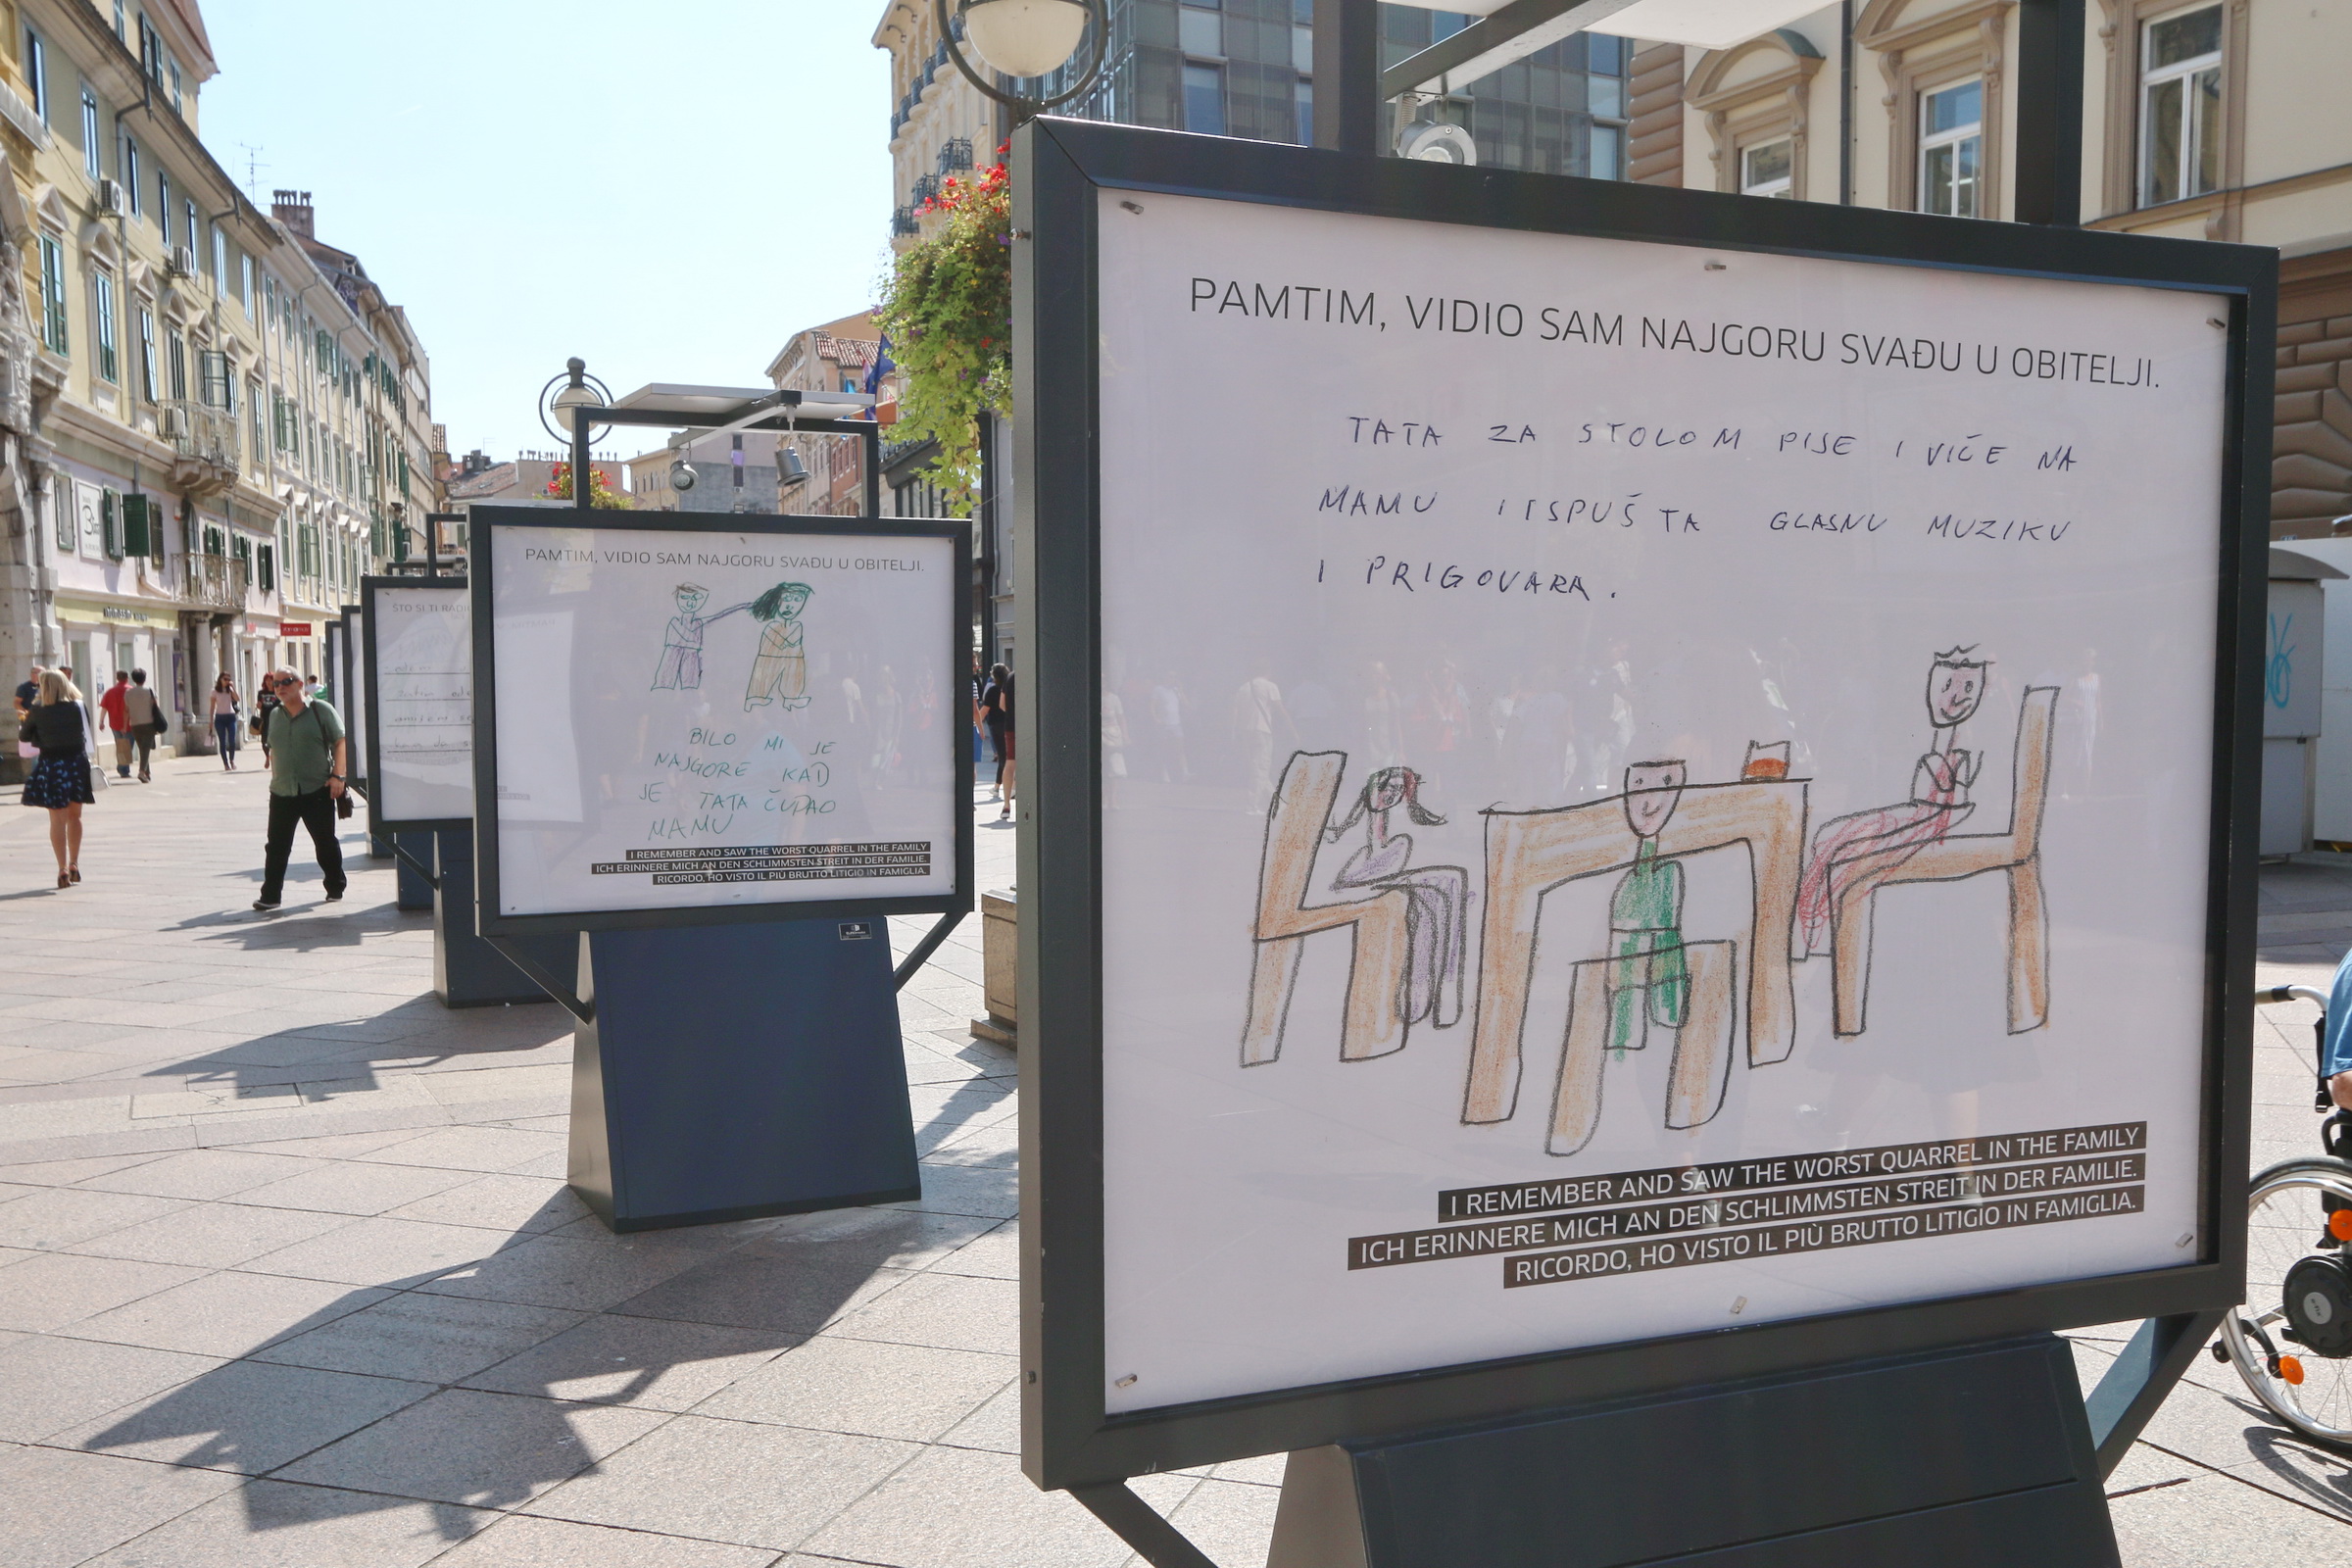 PAMTIM, VIDIO SAM NAJGORU SVAĐU U OBITELJI.
TATA ZA STOLOM PIJE I VIČE NA
MAMU I ISPUŠTA GLASNU MUZIKU
I PRIGOVARA.
I REMEMBER AND SAW THE WORST QUARREL IN THE FAMILY
ICH ERINNERE MICH AN DEN SCHLIMMSTEN STREIT IN DER FAMILIE.
RICORDO, HO VISTO IL PIÙ BRUTTO LITIGIO IN FAMIGLIA.
PAMTIM, VIDIO SAM NAJGORU SVAĐU U OBITELJI.
BILO MI JE
NAJGORE KAD
JE TATA ČUPAO
MAMU
I REMEMBER AND SAW THE WORST QUARREL IN THE FAMILY
ICH ERINNERE MICH AN DEN SCHLIMMSTEN STREIT IN DER FAMILIE.
RICORDO, HO VISTO IL PIÙ BRUTTO LITIGIO IN FAMIGLIA.
ŠTO SI TI